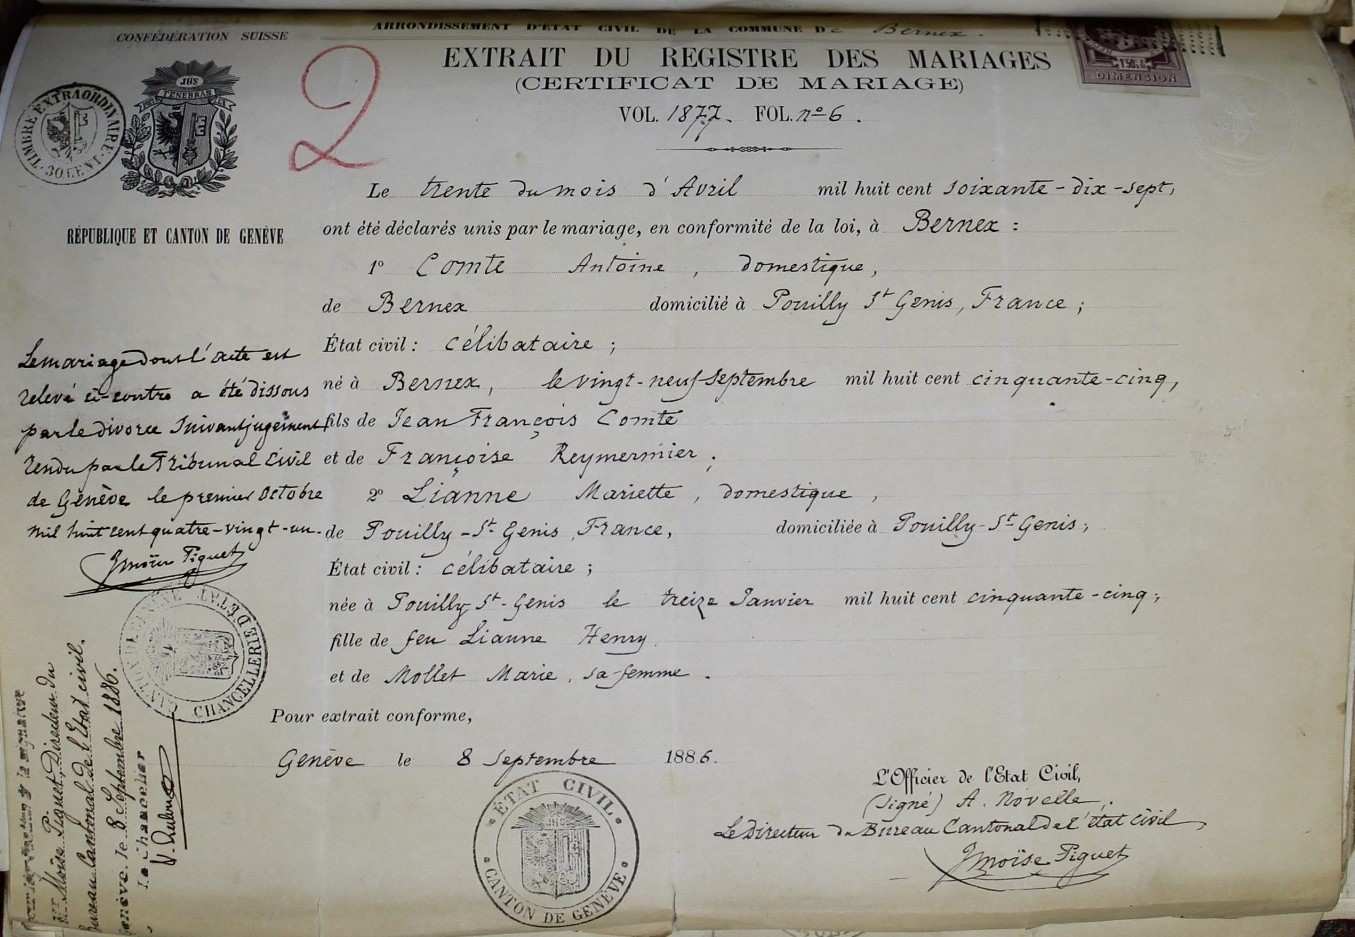 ARRONDISSEMENT D'ÉTAT CIVIL DE LA COMMUNE De Bernex.
CONFÉDÉRATION SUISSE
EXTRAIT DU REGISTRE DES MARIAGES
(CERTIFICAT DE MARIAGE)
VOL. 1877. FOL. nº 6.
2
TIMBRE EXTRAORDINAIRE
30 CENT.
JHS
TENEBRAS
DIMENSION
RÉPUBLIQUE ET CANTON DE GENÈVE
Le trente du mois d'Avril mil huit cent soixante-dix-sept,
ont été déclarés unis par le mariage, en conformité de la loi, à Bernex :
1º Comte Antoine, domestique,
de Bernex domicilié à Pouilly St Genis, France ;
État civil : célibataire ;
né à Bernex, le vingt-neuf Septembre mil huit cent cinquante-cinq,
fils de Jean François Comte
et de Françoise Reymermier ;
2º Lianne Mariette, domestique,
de Pouilly-St-Genis, France, domiciliée à Pouilly-St Genis ;
État civil : célibataire ;
née à Pouilly-St-Genis le treize Janvier mil huit cent cinquante-cinq ;
fille de feu Lianne Henry
et de Mollet Marie, sa femme.
Pour extrait conforme,
Genève le 8 Septembre 1886.
L'Officier de l'Etat Civil,
(signé) A. Novelle.
Le Directeur du Bureau Cantonal de l'état civil
Moïse Piguet
ÉTAT CIVIL
CANTON DE GENÈVE
Le mariage dont l'acte est
relevé ci-contre a été dissous
par le divorce suivant jugement
rendu par le Tribunal Civil
de Genève le premier Octobre
mil huit cent quatre-vingt-un.
Moïse Piguet
CANTON DE GENÈVE
CHANCELLERIE D'ÉTAT
de la signature
de Mr. Moïse Piguet, Directeur du
Bureau Cantonal de l'Etat civil.
Genève, le 8 Septembre 1886.
Le Chancelier